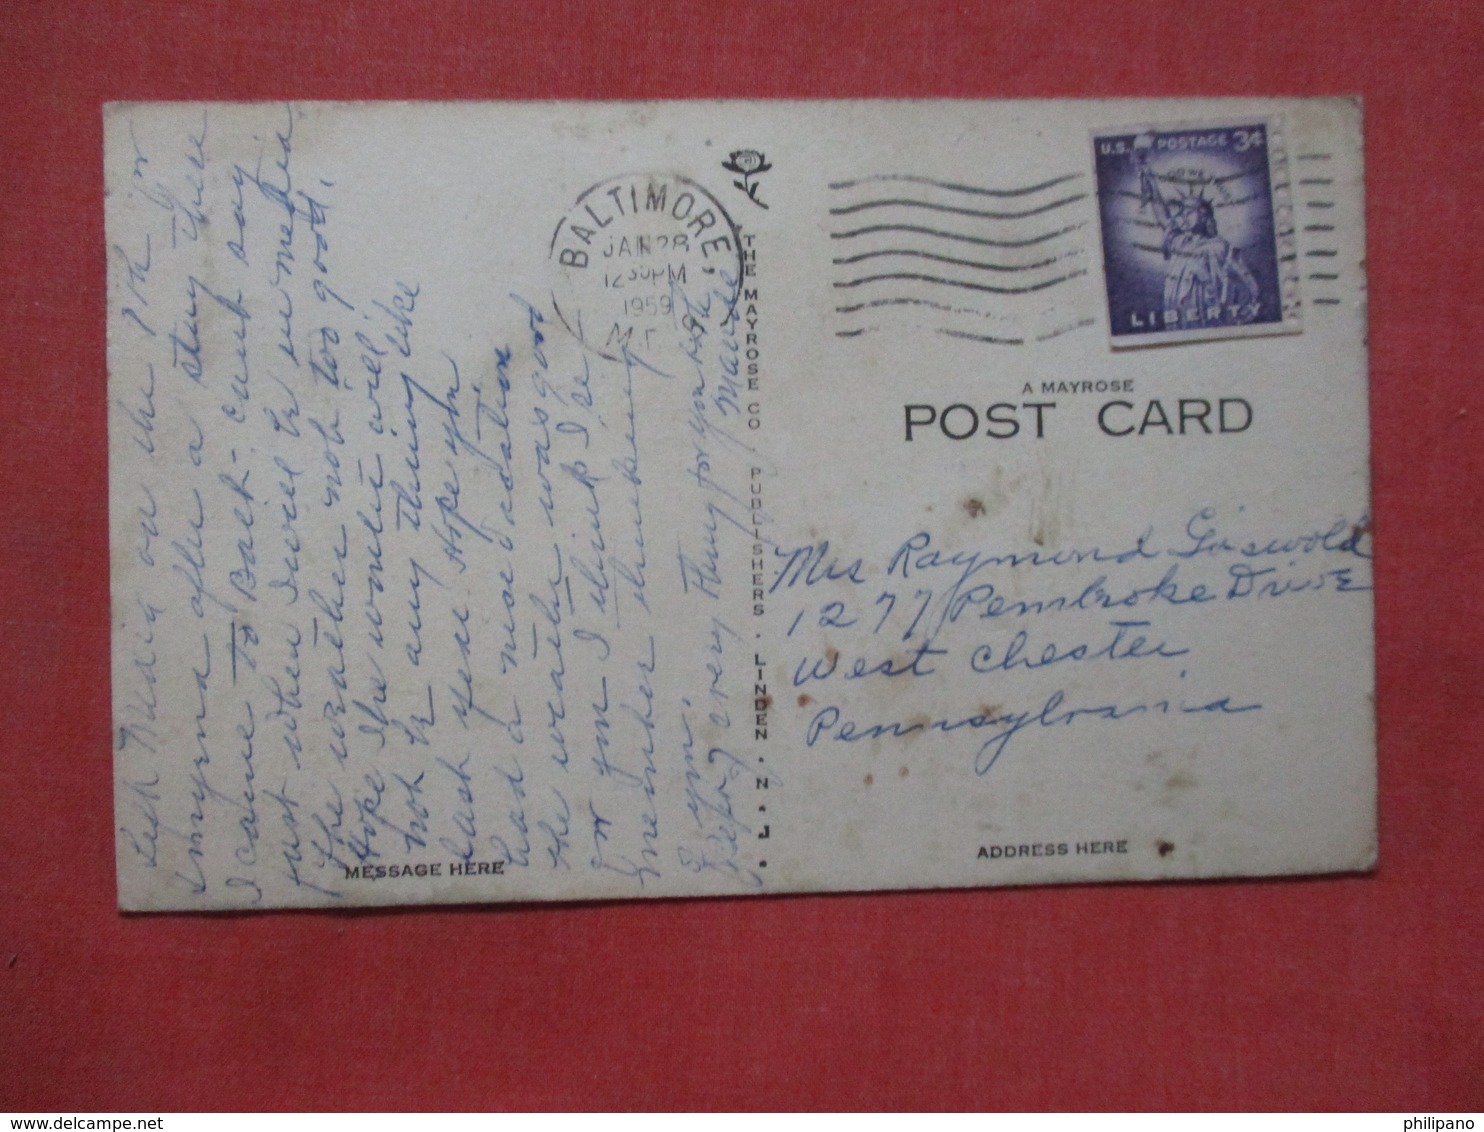 Left Media on the 9th for
Smyrna after a stay there
I came to Balt - can't say
just when I will be in Media
the weather not too good,
Hope the worlie will
not be any thing like
last year. Hope you
had a nice vacation
the weather was good
for you I think I se
member thinking
you.
very Thing for you both,
Maude
MESSAGE HERE
BALTIMORE,
JAN 28
12 30 PM
1959
THE MAYROSE CO. PUBLISHERS · LINDEN · N. J.
U.S. POSTAGE 3¢
IN GOD WE TRUST
LIBERTY
A MAYROSE
POST CARD
Mrs Raymond Griswold
1277 Pembroke Drive
West Chester
Pennsylvania
ADDRESS HERE
philipano
delcampe.net